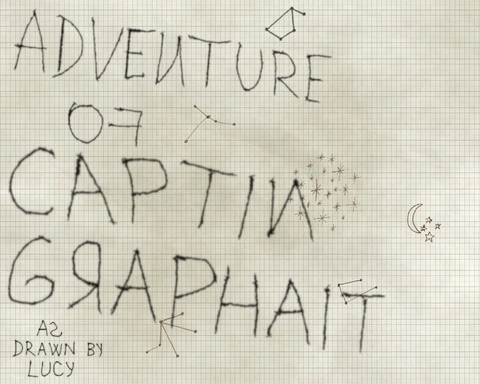 ADVENTURE
OF
CAPTIN
GRAPHAIT
AS
DRAWN BY
LUCY